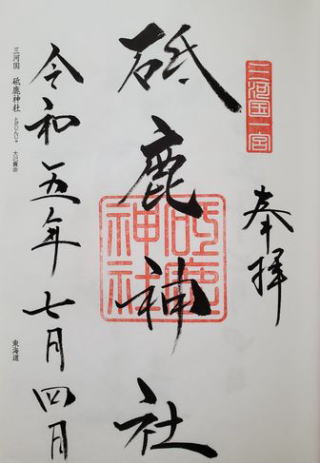 三河国一宮
奉拝
砥鹿神社
砥鹿神社
令和五年七月四日
三河国 砥鹿神社
東海道